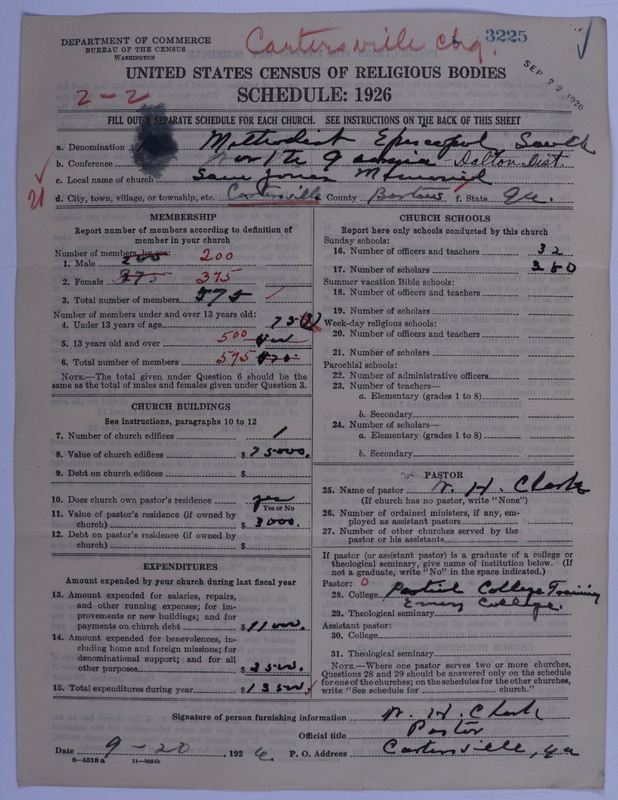 Cartersville chg.
3225
SEP 22 1926
DEPARTMENT OF COMMERCE
BUREAU OF THE CENSUS
WASHINGTON
UNITED STATES CENSUS OF RELIGIOUS BODIES
2-2
SCHEDULE: 1926
FILL OUT A SEPARATE SCHEDULE FOR EACH CHURCH. SEE INSTRUCTIONS ON THE BACK OF THIS SHEET
a. Denomination Methodist Episcopal South
b. Conference North Georgia Dalton Dist.
c. Local name of church Sam Jones Memorial
d. City, town, village, or township, etc. Cartersville County Bartow f. State Ga.
MEMBERSHIP
Report number of members according to definition of
member in your church
Number of members, by sex:
1. Male 200 200
2. Female 375 375
3. Total number of members 575
Number of members under and over 13 years old:
4. Under 13 years of age 75
5. 13 years old and over 500
6. Total number of members 575
NOTE.—The total given under Question 6 should be the
same as the total of males and females given under Question 3.
CHURCH BUILDINGS
See instructions, paragraphs 10 to 12
7. Number of church edifices 1
8. Value of church edifices $ 75000.
9. Debt on church edifices $
10. Does church own pastor's residence yes
Yes or No
11. Value of pastor's residence (if owned by
church) $ 3000.
12. Debt on pastor's residence (if owned by
church) $
EXPENDITURES
Amount expended by your church during last fiscal year
13. Amount expended for salaries, repairs,
and other running expenses; for im-
provements or new buildings; and for
payments on church debt $ 11000.
14. Amount expended for benevolences, in-
cluding home and foreign missions; for
denominational support; and for all
other purposes $ 2500.
15. Total expenditures during year $ 13500.
CHURCH SCHOOLS
Report here only schools conducted by this church
Sunday schools:
16. Number of officers and teachers 32
17. Number of scholars 380
Summer vacation Bible schools:
18. Number of officers and teachers
19. Number of scholars
Week-day religious schools:
20. Number of officers and teachers
21. Number of scholars
Parochial schools:
22. Number of administrative officers
23. Number of teachers—
a. Elementary (grades 1 to 8)
b. Secondary
24. Number of scholars—
a. Elementary (grades 1 to 8)
b. Secondary
PASTOR
25. Name of pastor W. H. Clark
(If church has no pastor, write "None")
26. Number of ordained ministers, if any, em-
ployed as assistant pastors
27. Number of other churches served by the
pastor or his assistants
If pastor (or assistant pastor) is a graduate of a college or
theological seminary, give name of institution below. (If
not a graduate, write "No" in the space indicated.)
Pastor: 0
28. College Partial College Training
Emory College.
29. Theological seminary
Assistant pastor:
30. College
31. Theological seminary
NOTE.—Where one pastor serves two or more churches,
Questions 28 and 29 should be answered only on the schedule
for one of the churches; on the schedules for the other churches,
write "See schedule for church."
Signature of person furnishing information W. H. Clark
Official title Pastor
Date 9-20, 1926. P. O. Address Cartersville, Ga
8—5518 a 11—9664b